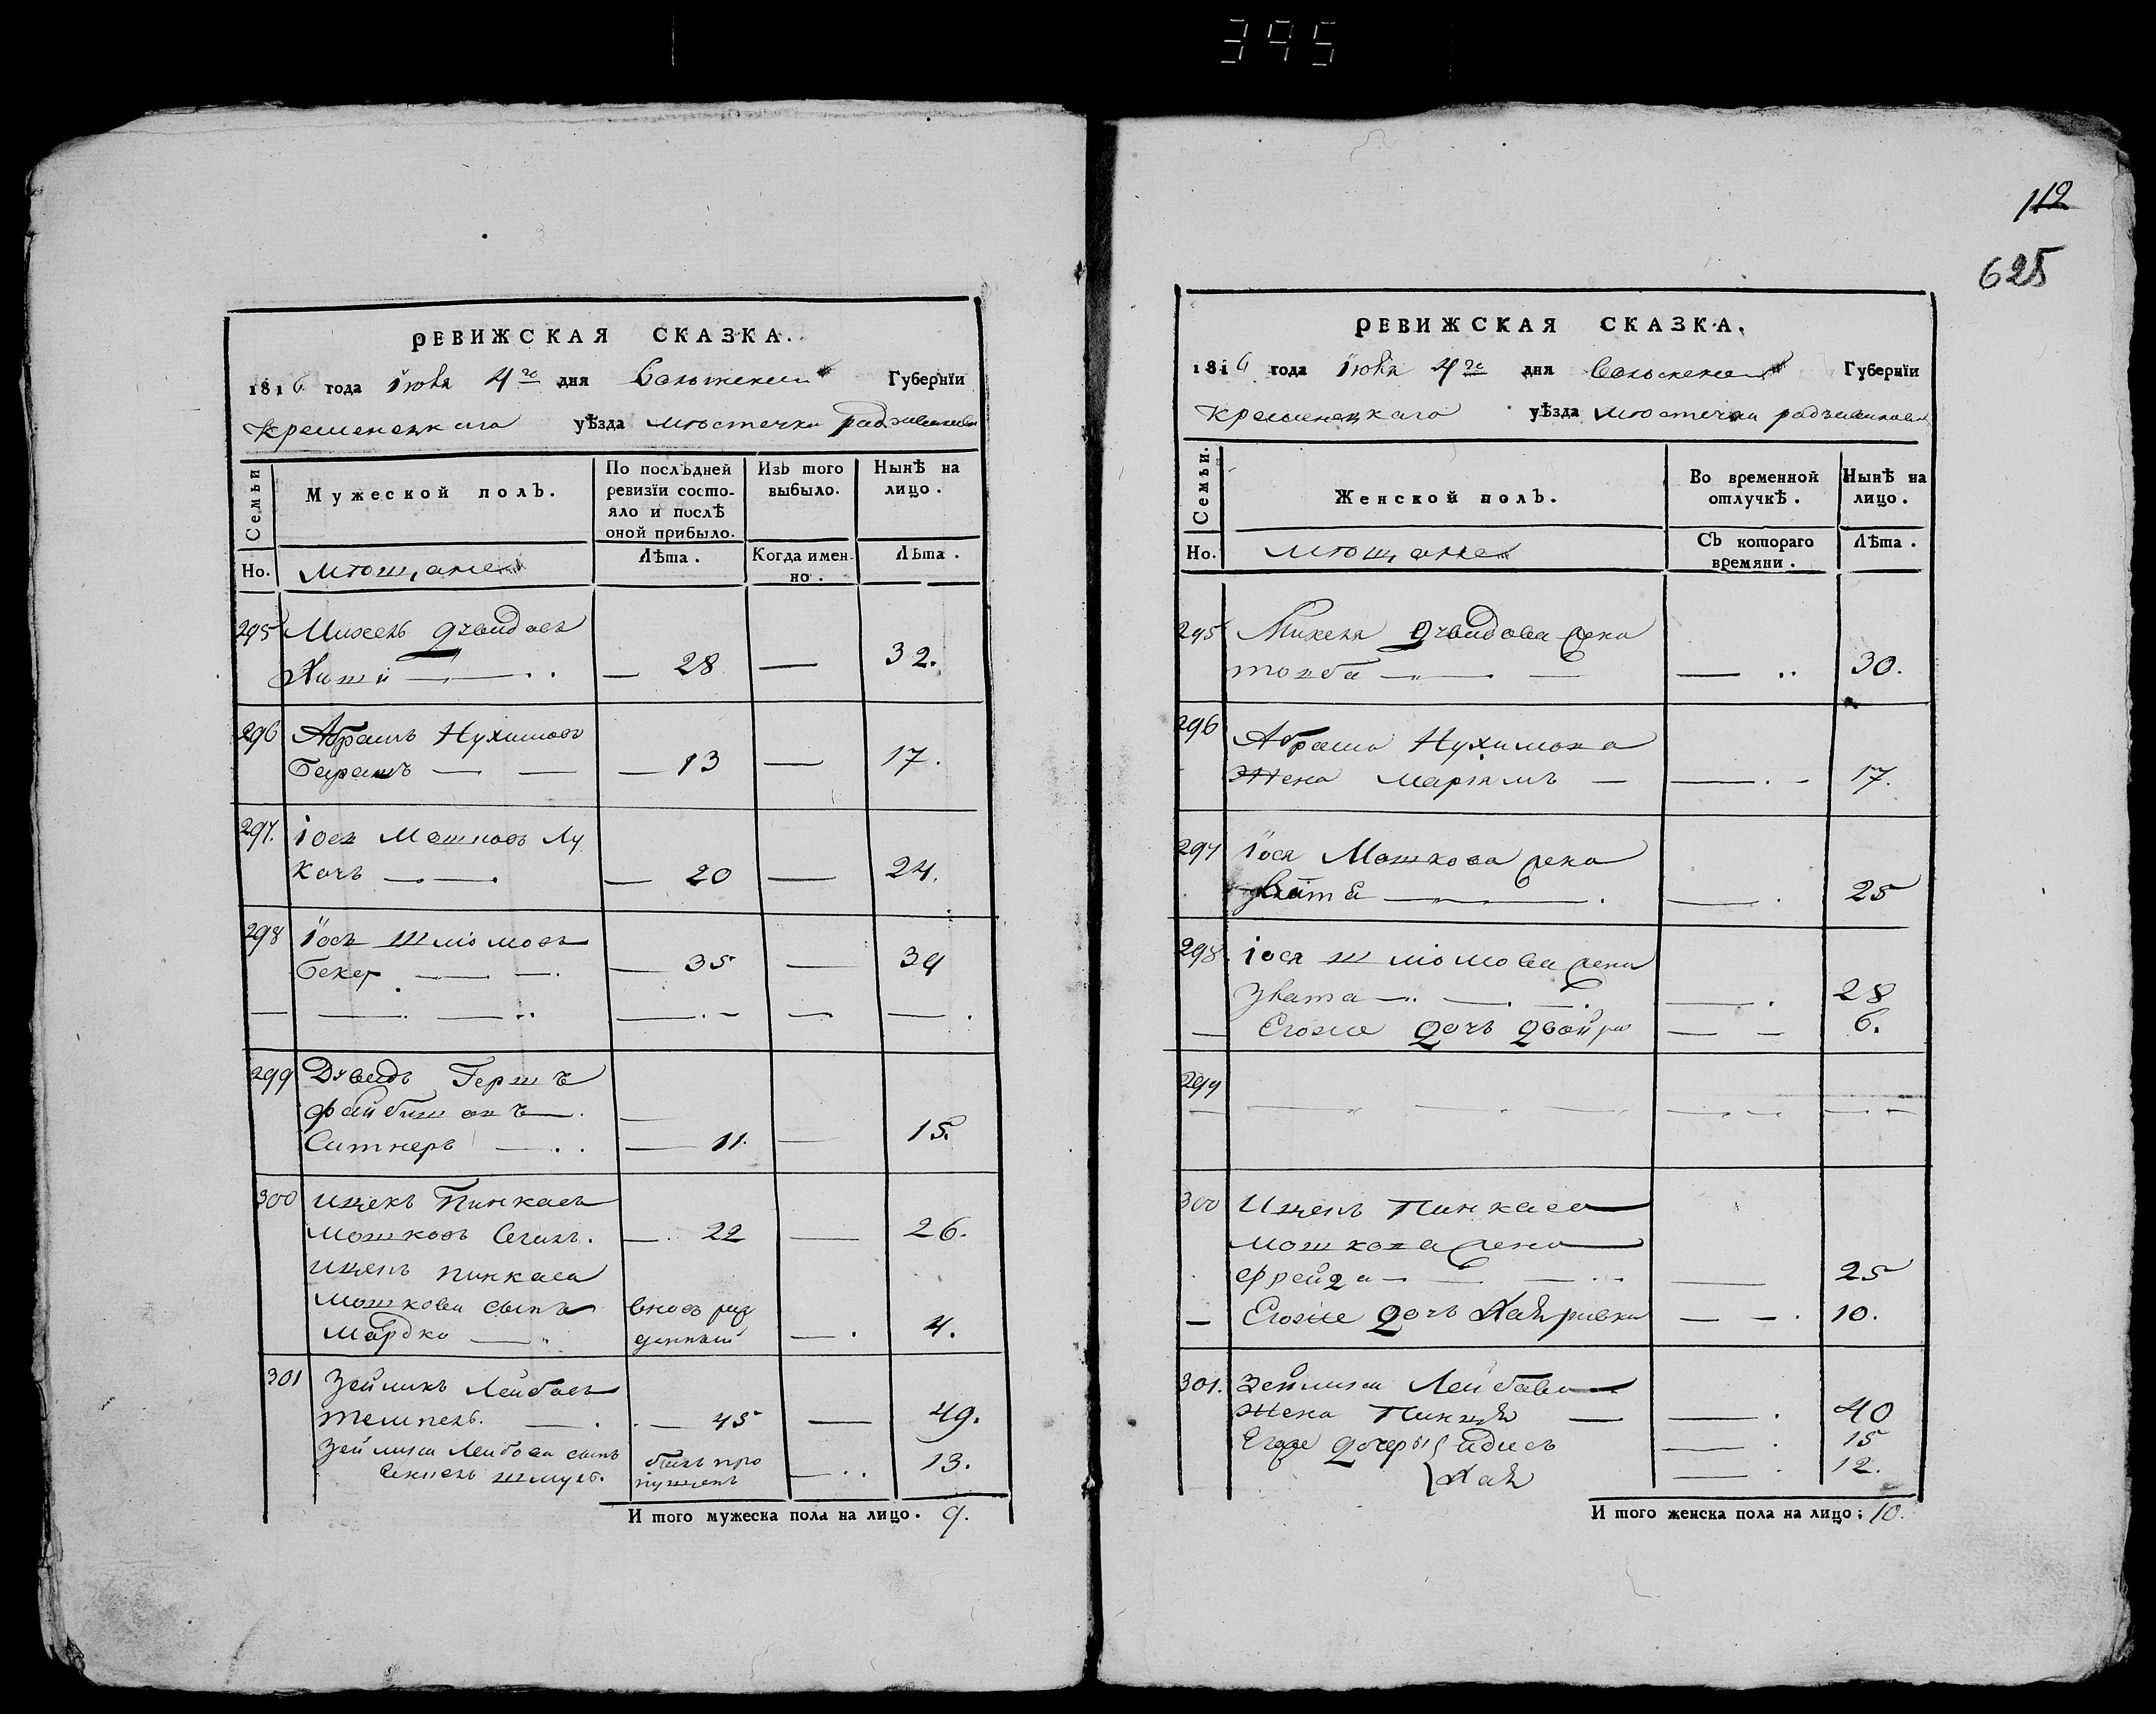 395
112
625
РЕВИЖСКАЯ СКАЗКА.
1816 года Іюня 4го дня Волынской Губерніи
Кременецкаго уѣзда мѣстечка Радзивилова
Семьи
Мужеской полъ.
По послѣдней ревизіи состояло и послѣ оной прибыло.
Изъ того выбыло.
Нынѣ на лицо.
Но.
мѣщане
Лѣта.
Когда именно.
Лѣта.
295 Михель Дувидовъ
— 28 — 32.
296 Абрамъ Нухимовъ
Барашъ — — — 13 — 17.
297. Іось Мошковъ Лу
качъ — — — 20 — 24.
298 Іось Шліомовъ
Бекер — — — 35 — 39
299 Дувидъ Гершъ
Файбишовъ —
Ситнеръ — — 11. — 15.
300 Ицекъ Пинкасъ
Мошковъ — 22 — 26.
Ицека Пинкаса
Мошкова сынъ вновь рож
Мордко — денный — 4.
301 Зейликъ Лейбовъ
Темпель. — — 45 — 49.
Зейлика Лейбова сынъ былъ про
шмуль. пущенъ — 13.
И того мужеска пола на лицо. 9.
РЕВИЖСКАЯ СКАЗКА.
1816 года Іюня 4го дня Волынской Губерніи
Кременецкаго уѣзда мѣстечка Радзивилова
Семьи.
Женской полъ.
Во временной отлучкѣ.
Нынѣ на лицо.
Но.
мѣщане
Съ котораго времяни.
Лѣта.
295 Михеля Дувидова жена
толба — — — 30.
296
Абрама Нухимова
Жена Маріямъ — — 17.
297 Іося Мошкова жена
Злата — — 25
298 Іося Шліомова жена
Злата — — — 28
— Егоже дочь Двойра — — 6.
299
300 Ицека Пинкаса
Мошкова жена
Фрейда — — — 25
— Егоже дочь Хая ривка — — 10.
301. Зейлика Лейбова
Жена — — 40
Егоже дочеры { Идись — 15
{ Хая — 12.
И того женска пола на лицо; 10.